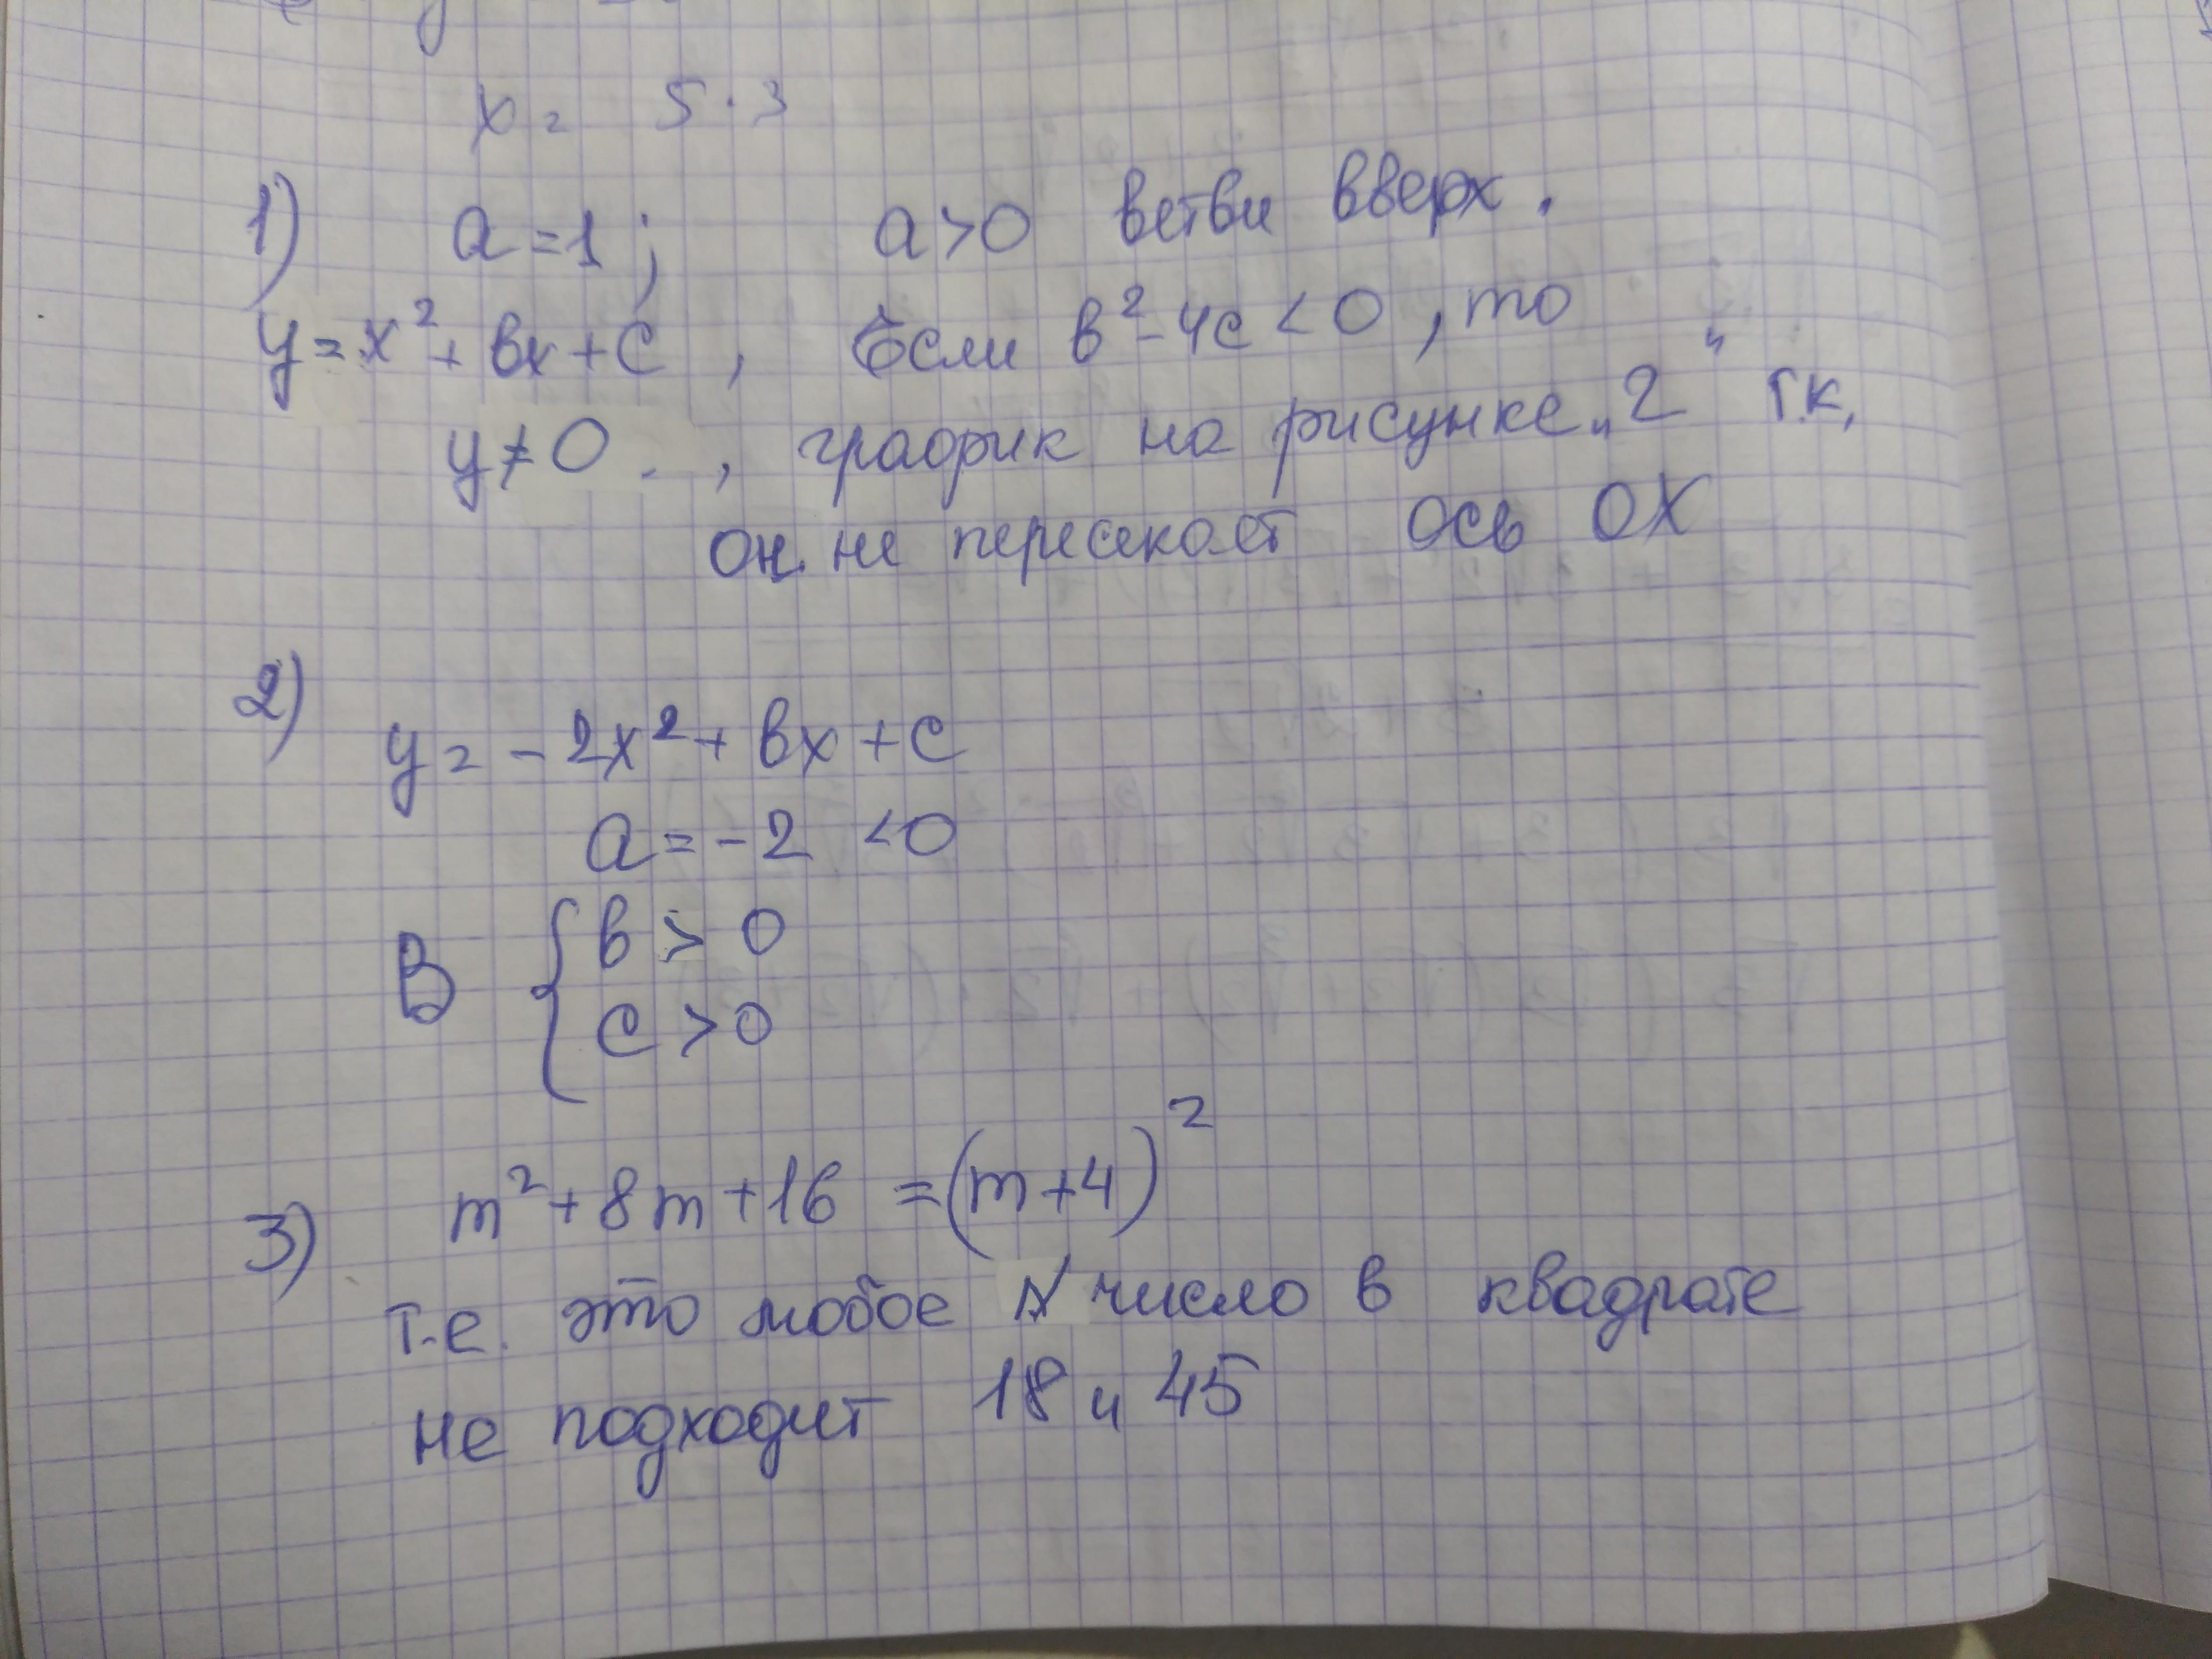 x = 5·3
1) a=1; a>0 ветви вверх.
y=x²+bx+c, Если b²-4c<0, то
y≠0., график на рисунке „2" т.к.
он не пересекает ось OX
2)
y=-2x²+bx+c
a=-2 <0
b>0
B {
c>0
3) m²+8m+16 =(m+4)²
т.е. это любое число в квадрате
не подходит 18 и 45